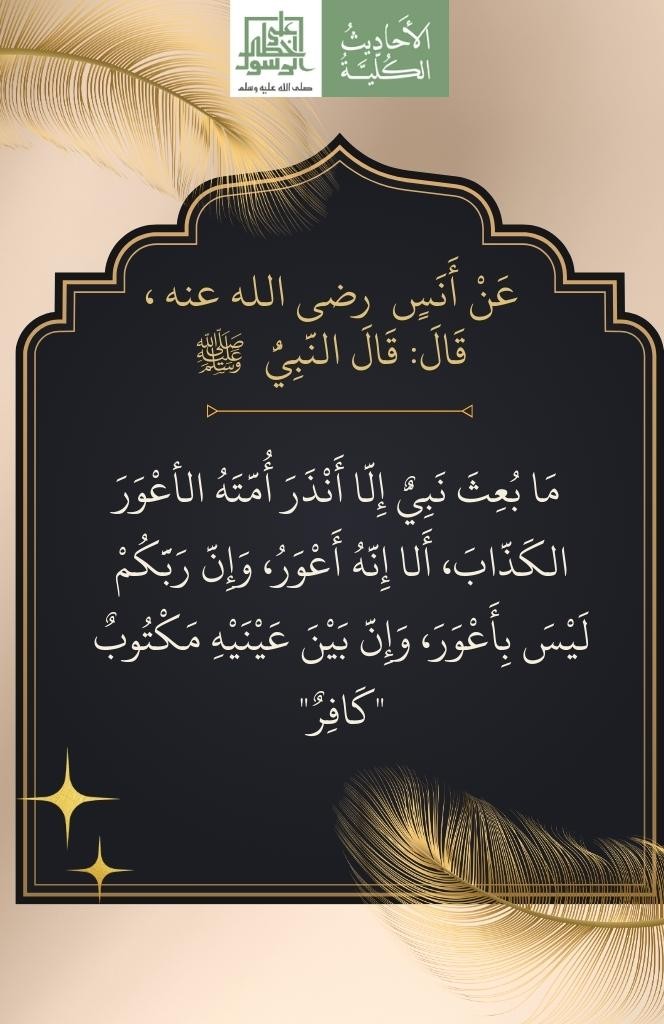 الأَحَادِيثُ
الكُلِّيَّةُ
على
خطى
الرسول
صلى الله عليه وسلم
عَنْ أَنَسٍ رضى الله عنه ،
قَالَ: قَالَ النّبِيُّ ﷺ
مَا بُعِثَ نَبِيٌّ إِلّا أَنْذَرَ أُمّتَهُ الأعْوَرَ
الكَذّابَ، أَلا إِنّهُ أَعْوَرُ، وَإِنّ رَبّكُمْ
لَيْسَ بِأَعْوَرَ، وَإِنّ بَيْنَ عَيْنَيْهِ مَكْتُوبٌ
"كَافِرٌ"